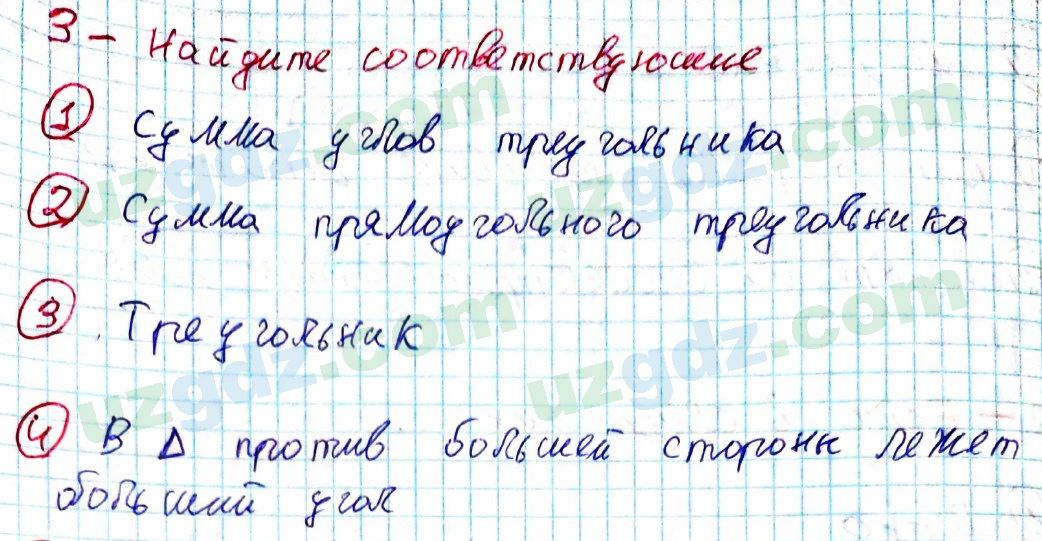 3 - Найдите соответствдюшие
1 Сумма углов треугольника
2 Сумма прямоугольного треугольника
3. Треугольник
4 В Δ против большей стороны лежет
больший угол
uzgdz.com uzgdz.com
uzgdz.com uzgdz.com